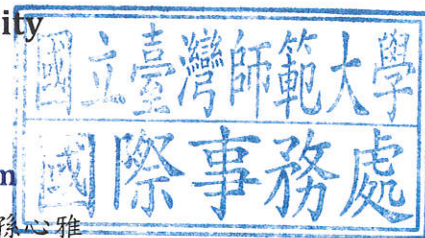 ity
國立臺灣師範大學
m
國際事務處
孫心雅